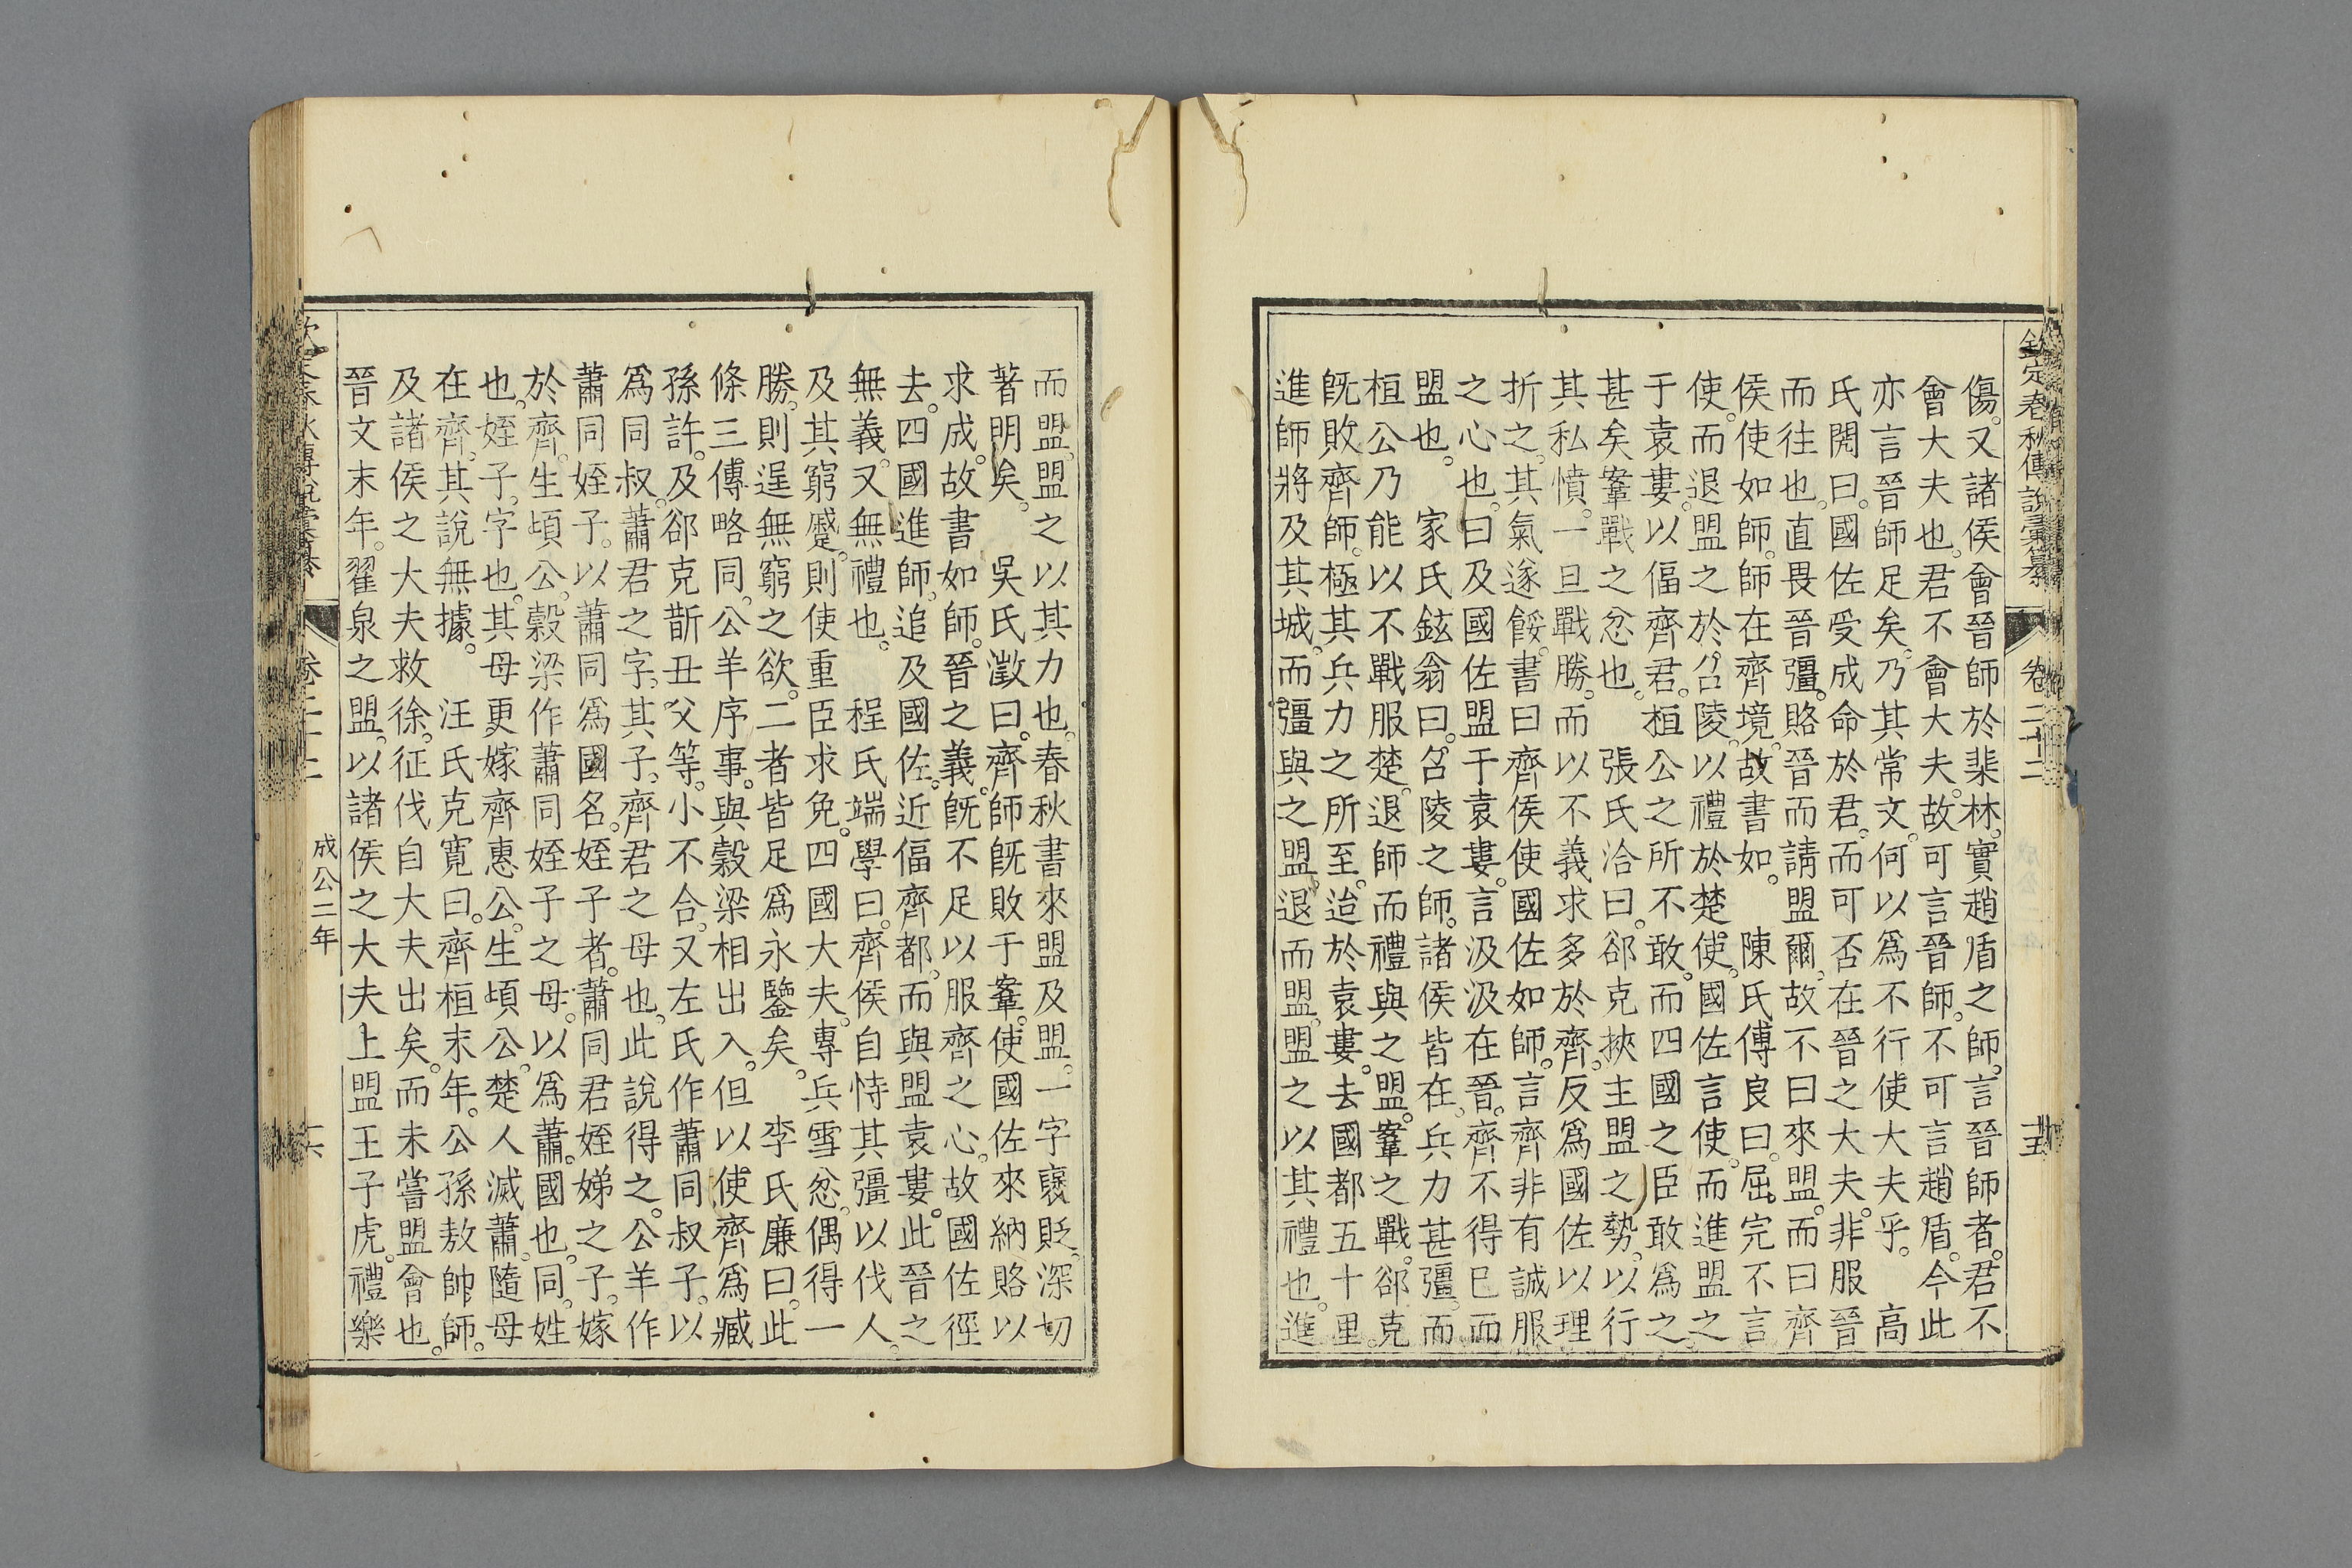 欽定春秋傳說彙纂 卷二十二
傷。又諸侯會晉師於棐林。實趙盾之師。言晉師者。君不
會大夫也。君不會大夫。故可言晉師。不可言趙盾。今此
亦言晉師足矣。乃其常文。何以爲不行使大夫乎。 高
氏閌曰。國佐受成命於君。而可否在晉之大夫。非服晉
而往也。直畏晉彊。賂晉而請盟爾。故不曰來盟。而曰齊
侯使如師。師在齊境。故書如。 陳氏傅良曰。屈完不言
使。而退盟之於召陵。以禮於楚使。國佐言使。而進盟之
于袁婁。以偪齊君。桓公之所不敢。而四國之臣敢爲之。
甚矣鞌戰之忿也。 張氏洽曰。郤克挾主盟之勢。以行
其私憤。一旦戰勝。而以不義求多於齊。反爲國佐以理
折之。其氣遂餒。書曰齊侯使國佐如師。言齊非有誠服
之心也。曰及國佐盟于袁婁。言汲汲在晉。齊不得已而
盟也。 家氏鉉翁曰。召陵之師。諸侯皆在。兵力甚彊。而
桓公乃能以不戰服楚。退師而禮與之盟。鞌之戰。郤克
旣敗齊師。極其兵力之所至。迨於袁婁。去國都五十里。
進師將及其城。而彊與之盟。退而盟。盟之以其禮也。進
而盟。盟之以其力也。春秋書來盟及盟。一字襃貶。深切
著明矣。 吳氏澂曰。齊師旣敗于鞌。使國佐來納賂以
求成。故書如師。晉之義。旣不足以服齊之心。故國佐徑
去。四國進師。追及國佐。近偪齊都。而與盟袁婁。此晉之
無義。又無禮也。 程氏端學曰。齊侯自恃其彊以伐人。
及其窮蹙。則使重臣求免。四國大夫。專兵雪忿。偶得一
勝。則逞無窮之欲。二者皆足爲永鑒矣。 李氏廉曰。此
條三傳略同。公羊序事。與穀梁相出入。但以使齊爲臧
孫許。及郤克斮丑父等。小不合。又左氏作蕭同叔子。以
爲同叔。蕭君之字。其子。齊君之母也。此說得之。公羊作
蕭同姪子。以蕭同爲國名。姪子者。蕭同君姪娣之子。嫁
於齊。生頃公。穀梁作蕭同姪子之母。以爲蕭。國也。同。姓
也。姪子。字也。其母更嫁齊惠公。生頃公。楚人滅蕭。隨母
在齊。其說無據。 汪氏克寬曰。齊桓末年。公孫敖帥師。
及諸侯之大夫救徐。征伐自大夫出矣。而未嘗盟會也。
晉文末年。翟泉之盟。以諸侯之大夫上盟王子虎。禮樂
成公二年